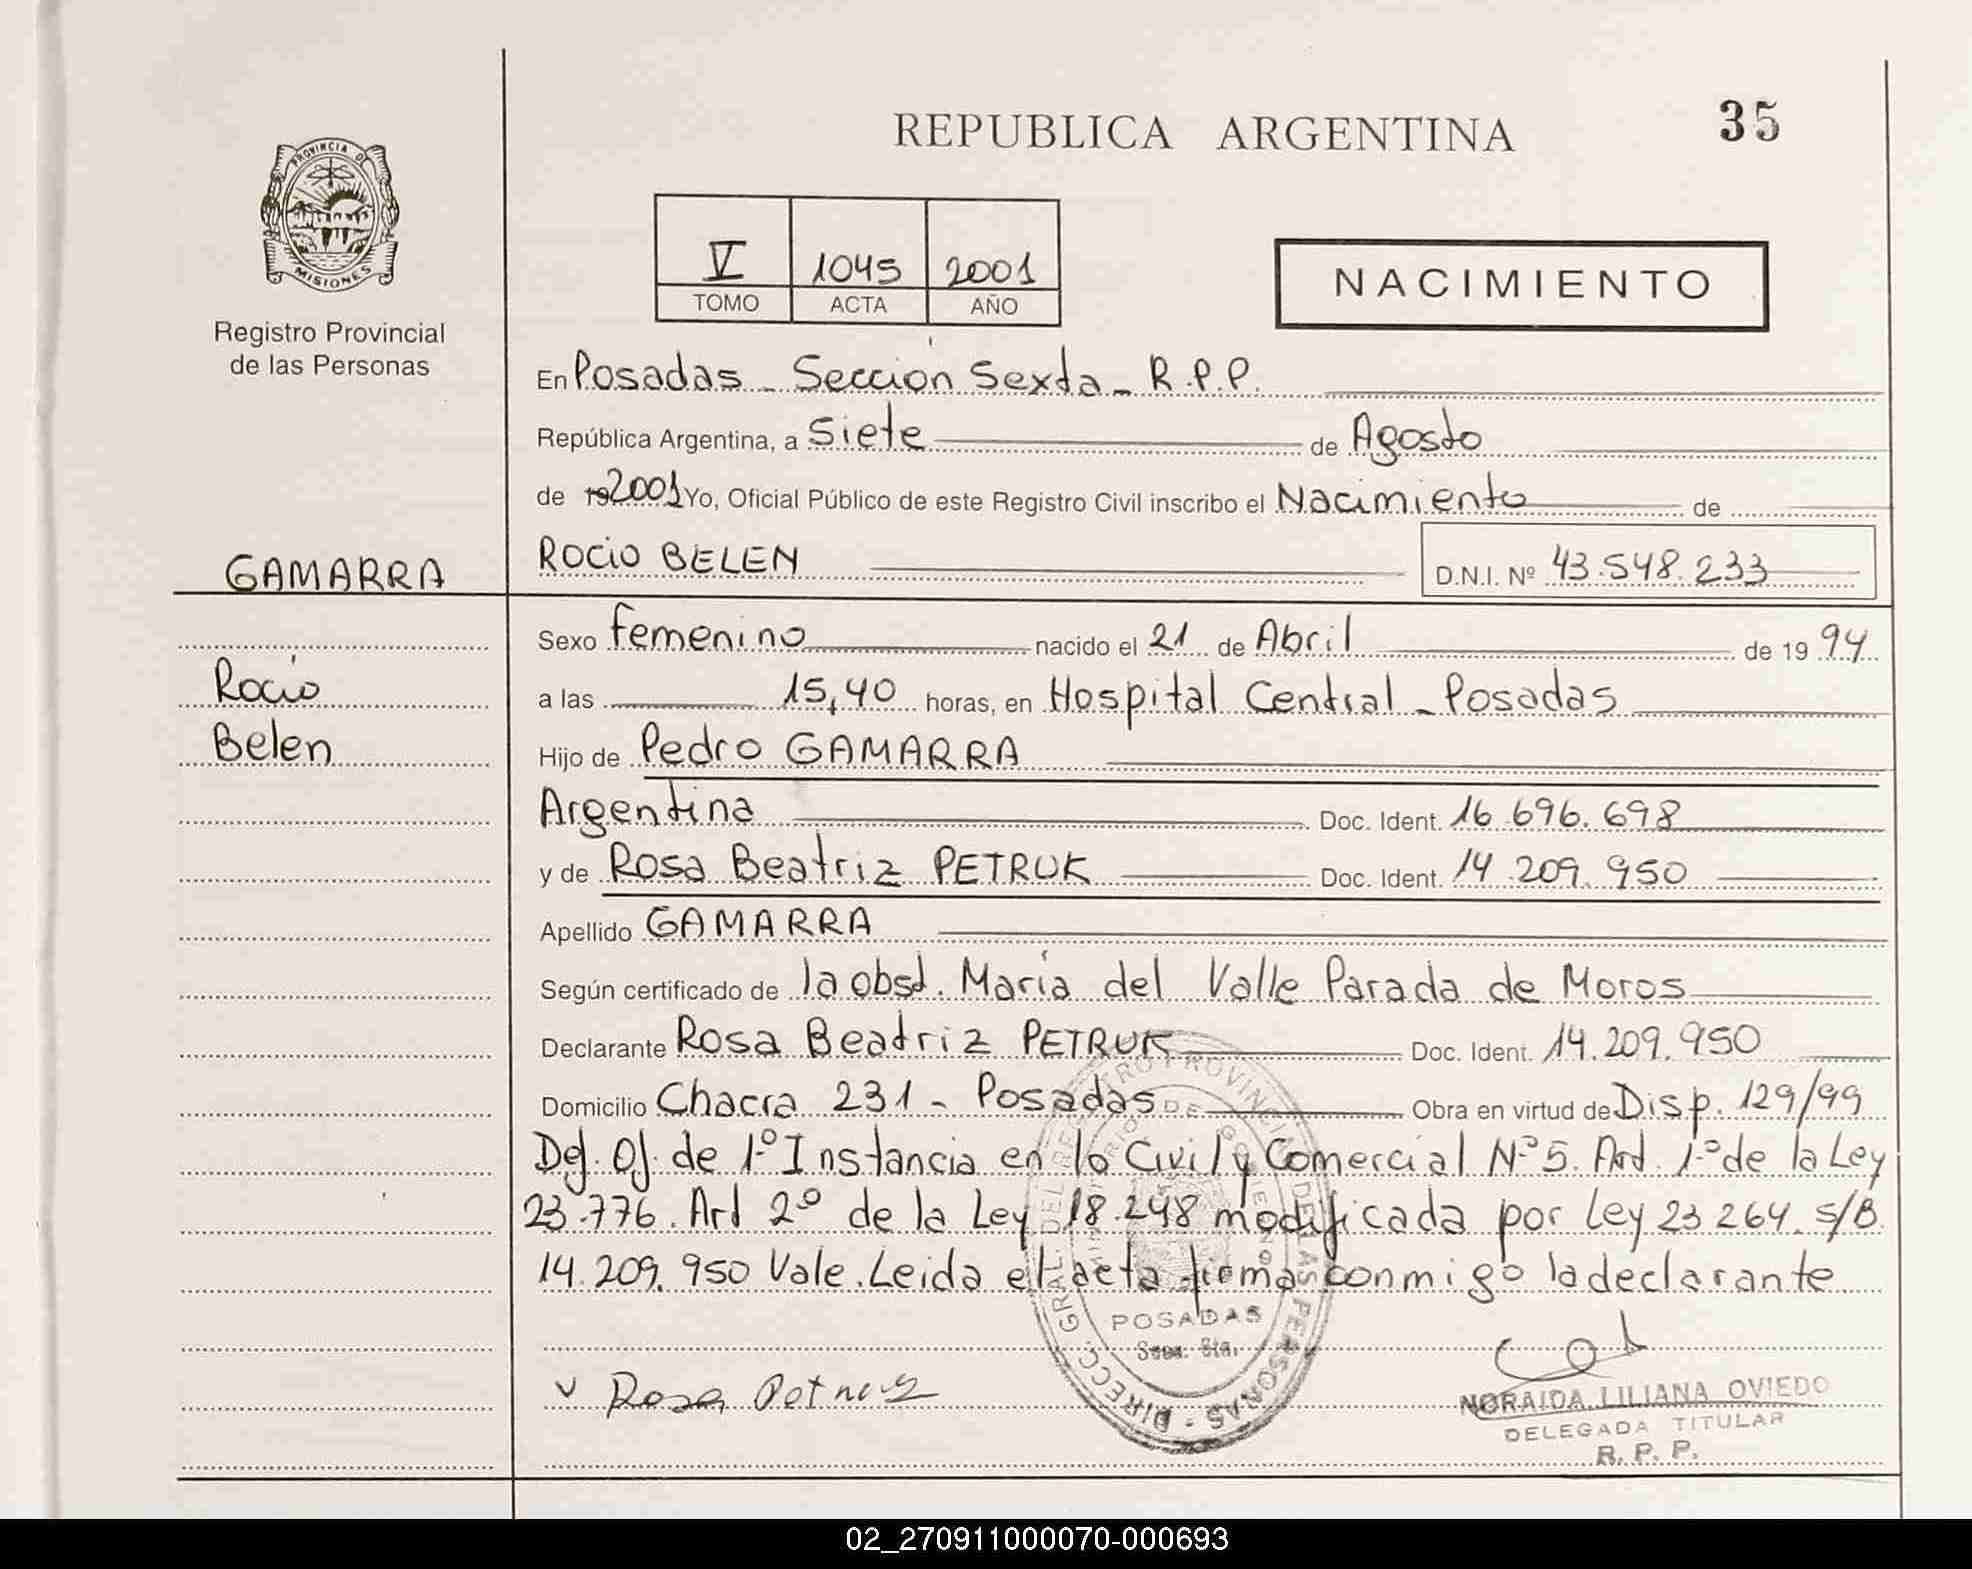 REPUBLICA ARGENTINA
35
PROVINCIA D
MISIONES
Registro Provincial
de las Personas
V 1045 2001
TOMO ACTA AÑO
NACIMIENTO
En Posadas - Sección Sexta - R.P.P.
República Argentina, a Siete de Agosto
de 19 2001 Yo, Oficial Público de este Registro Civil inscribo el Nacimiento de
GAMARRA
ROCIO BELEN D.N.I. Nº 43.548.233
Sexo femenino nacido el 21 de Abril de 19 94
Rocío
a las 15,40 horas, en Hospital Central - Posadas
Belen
Hijo de Pedro GAMARRA
Argentina Doc. Ident. 16.696.698
y de Rosa Beatriz PETRUK Doc. Ident. 14.209.950
Apellido GAMARRA
Según certificado de la obst. María del Valle Parada de Moros
Declarante Rosa Beatriz PETRUK Doc. Ident. 14.209.950
Domicilio Chacra 231 - Posadas Obra en virtud de Disp. 129/99
Def. Of. de 1º Instancia en lo Civil y Comercial Nº 5. Art. 1º de la Ley
23.776. Art 2º de la Ley 18.248 modificada por Ley 23264. S/B.
14.209.950 Vale. Leida el acta firma conmigo la declarante
DIRECC. GRAL. DEL REGISTRO PROVINCIAL DE LAS PERSONAS
MINISTERIO DE GOBIERNO
POSADAS
Secc. 6ta.
Rosa
NORAIDA LILIANA OVIEDO
DELEGADA TITULAR
R. P. P.
02_270911000070-000693